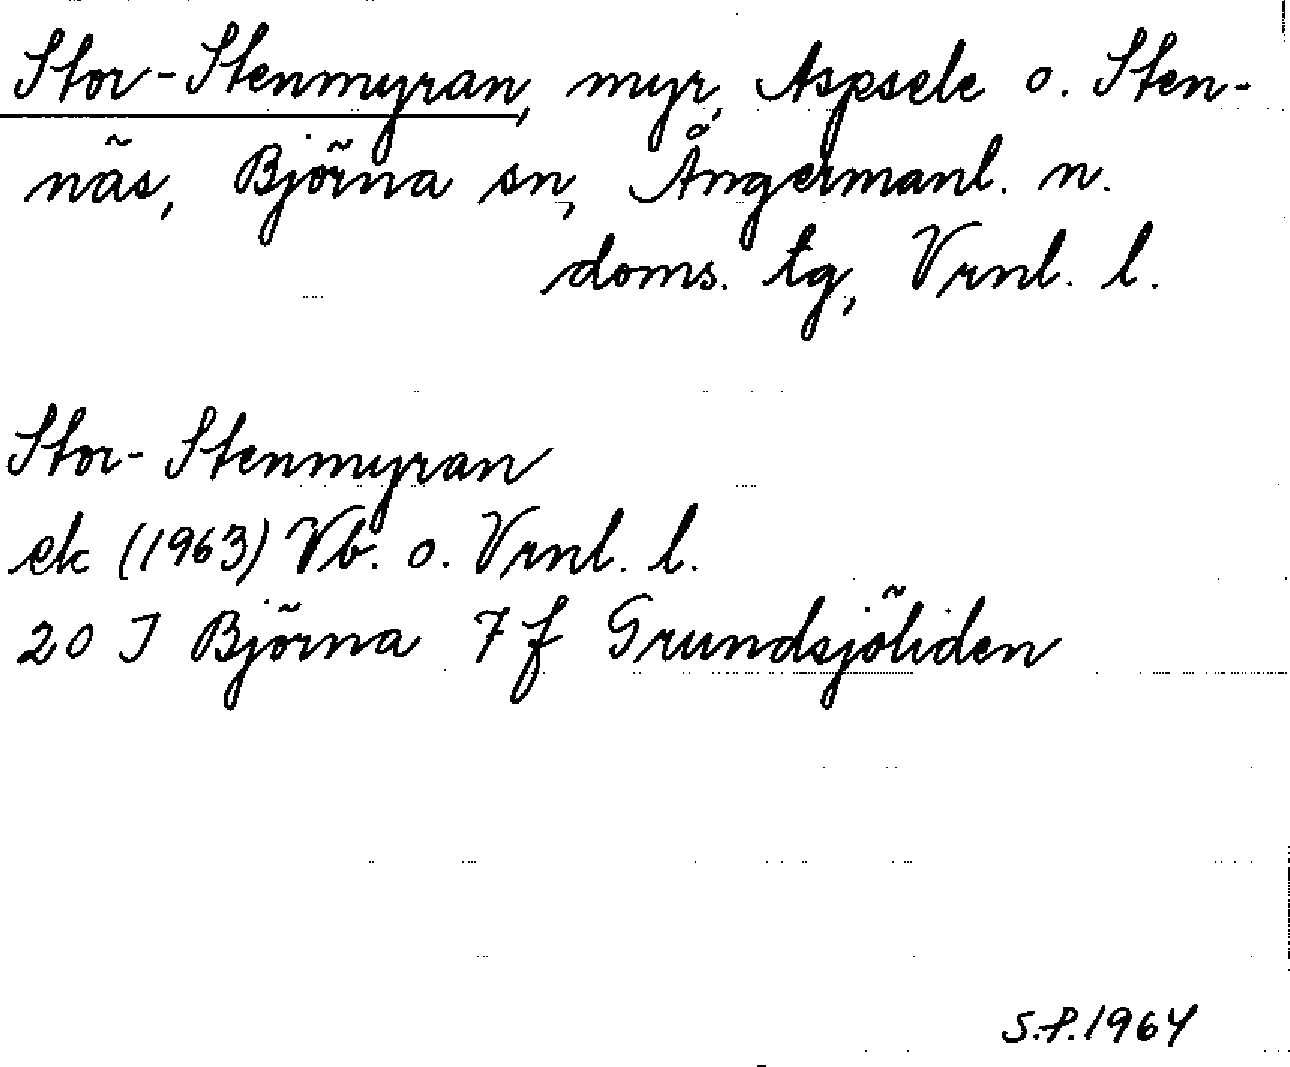 Stor-Stenmyran, myr, Aspsele o. Sten-
näs, Björna sn, Ångermanl. n.
doms. tg, Vrnl. l.
Stor-Stenmyran
ek (1963) Vb. o. Vrnl. l.
20 J Björna 7 f Grundsjöliden
S.P. 1964